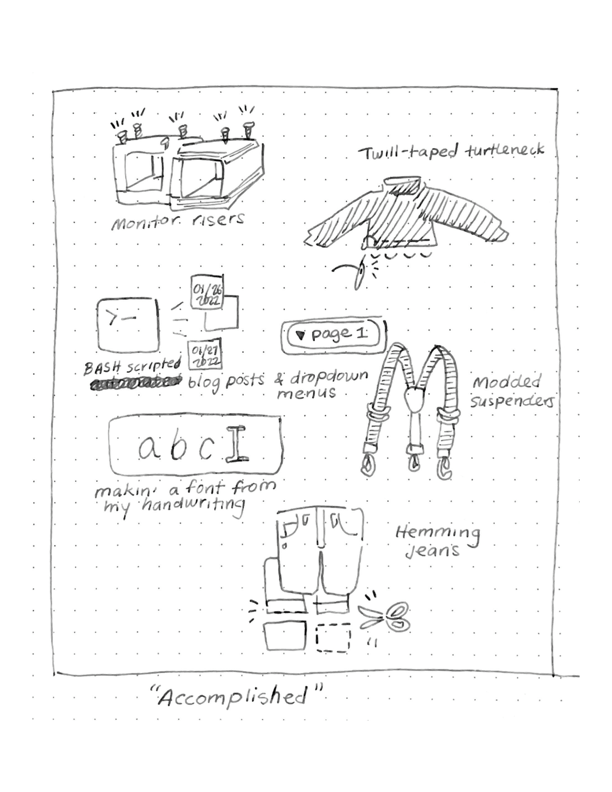 Monitor risers
Twill-taped turtleneck
>_
01/26
2022
01/27
2022
▼ page 1
BASH scripted
blog posts & dropdown
menus
Modded
suspenders
abc
makin' a font from
my handwriting
Hemming
jeans
"Accomplished"